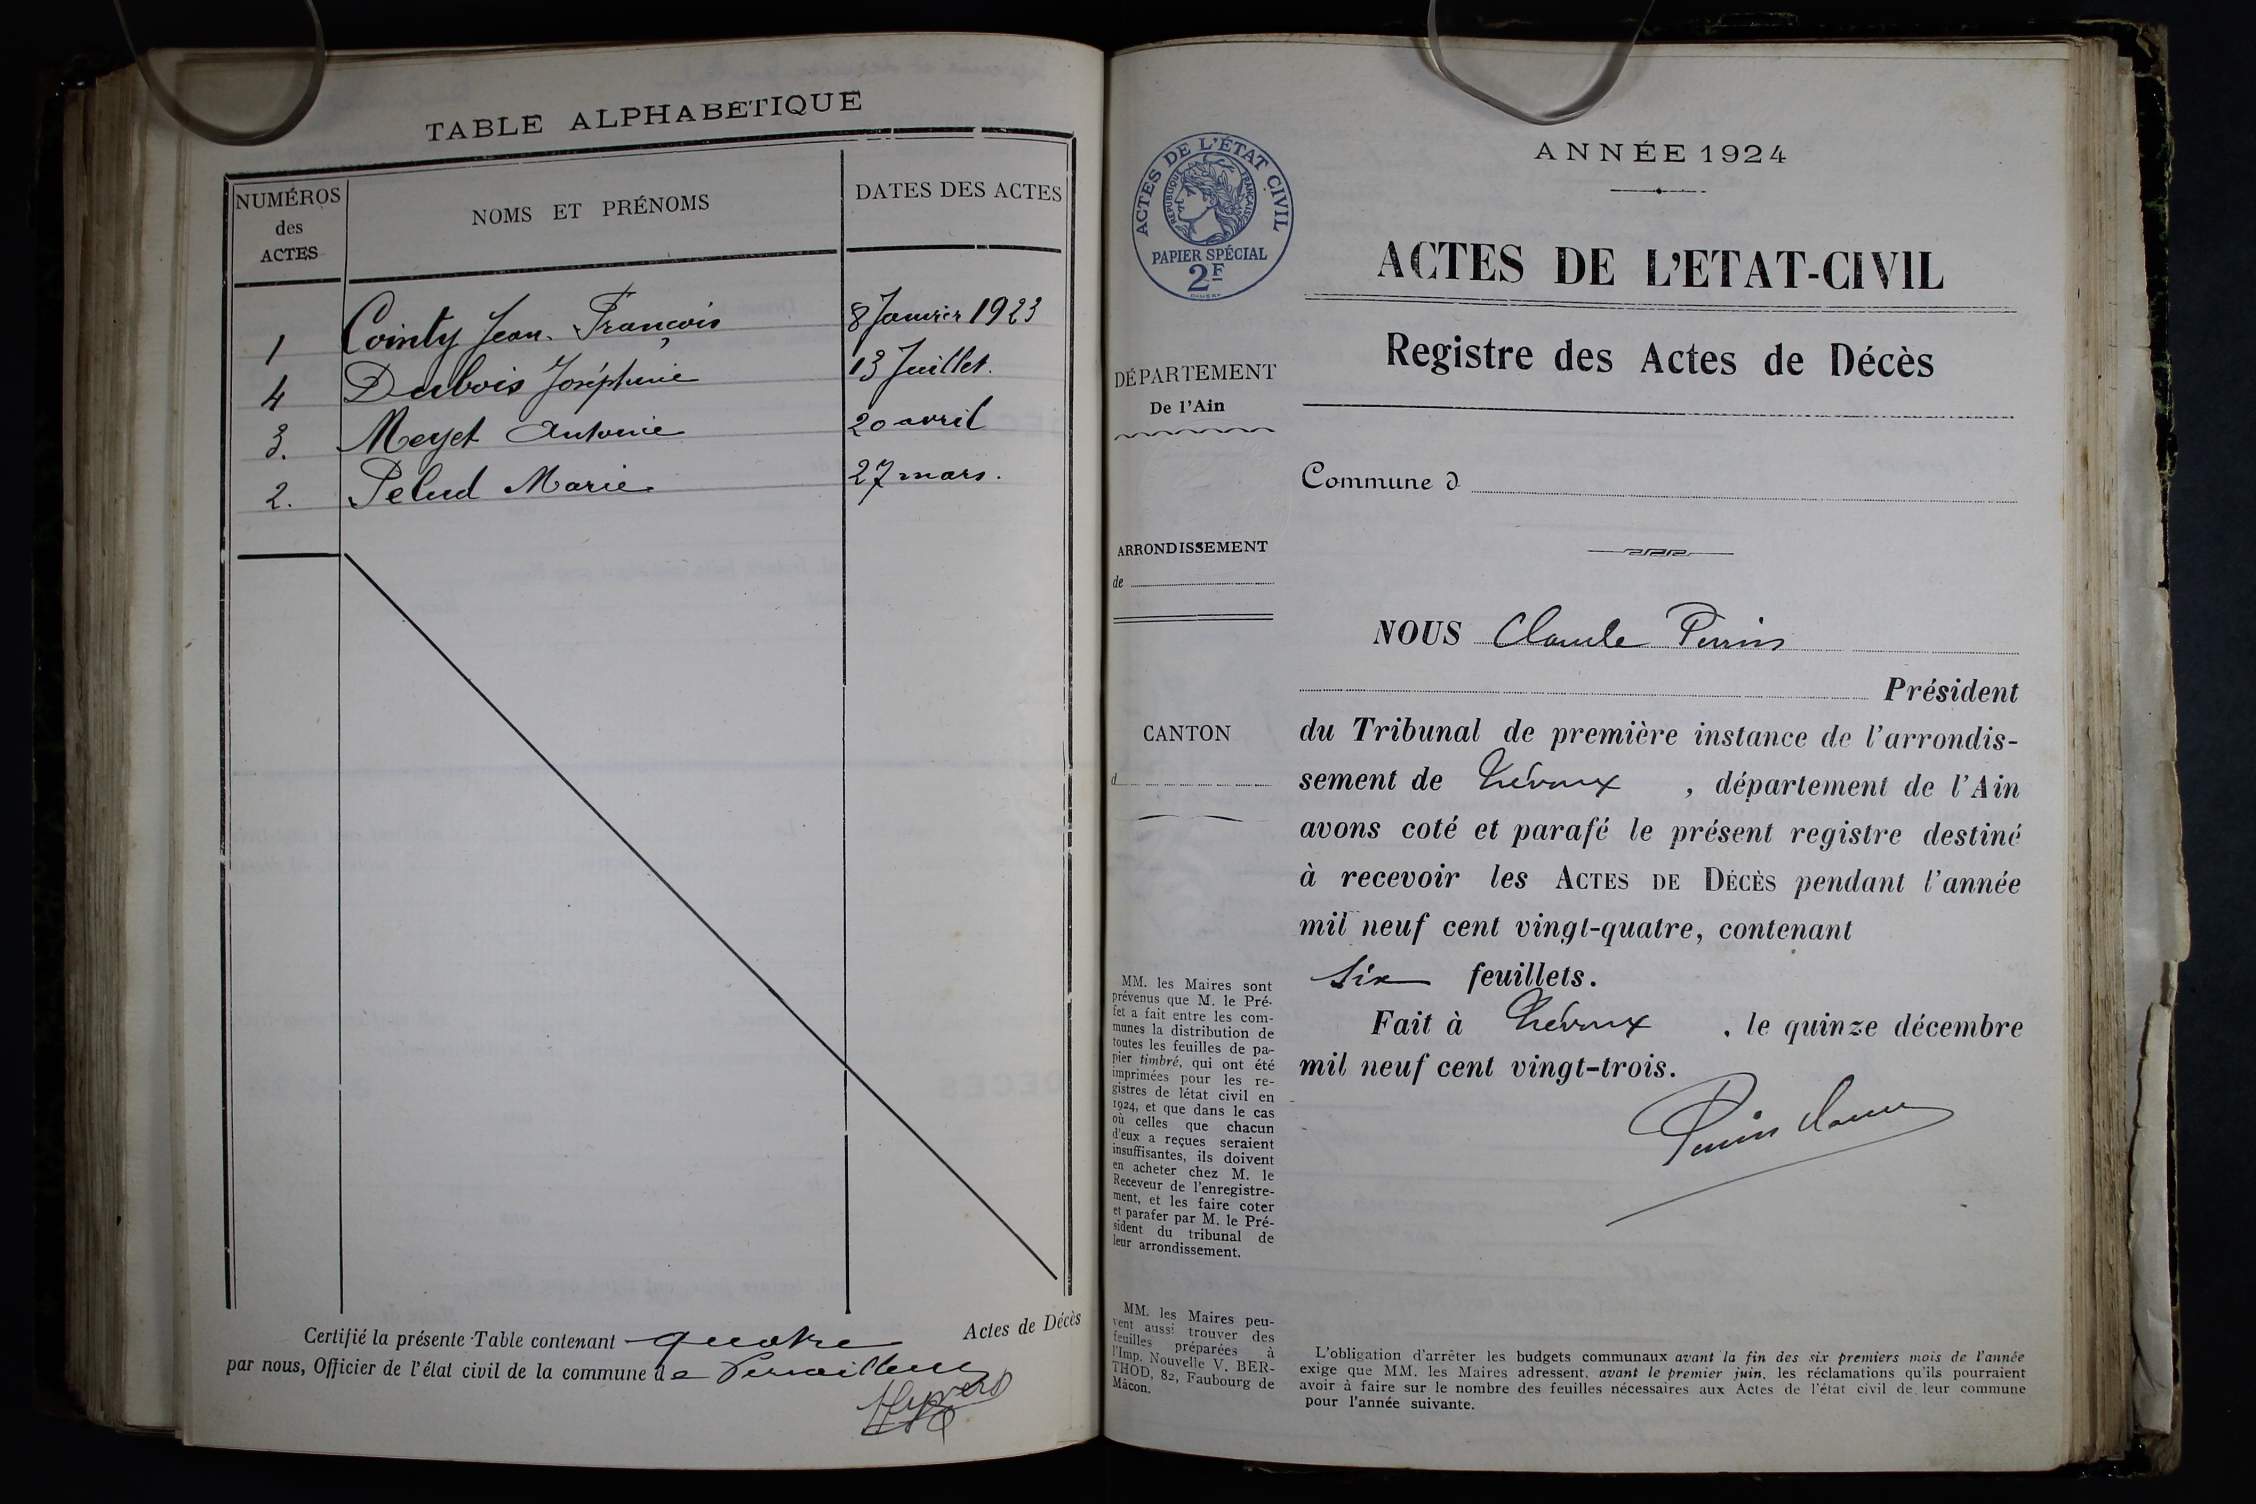 TABLE ALPHABÉTIQUE
NUMÉROS des ACTES
NOMS ET PRÉNOMS
DATES DES ACTES
1 Cointy Jean-François 8 Janvier 1923
4 Dubois Joséphine 13 Juillet.
3. Meyet Antoine 20 avril
2. Pelud Marie 27 mars.
Certifié la présente Table contenant quatre Actes de Décès
par nous, Officier de l'état civil de la commune de
ACTES DE L'ÉTAT CIVIL
RÉPUBLIQUE FRANÇAISE
PAPIER SPÉCIAL
2F
DÉPARTEMENT
De l'Ain
ARRONDISSEMENT
de
CANTON
d
MM. les Maires sont
prévenus que M. le Pré-
fet a fait entre les com-
munes la distribution de
toutes les feuilles de pa-
pier timbré, qui ont été
imprimées pour les re-
gistres de l'état civil en
1924, et que dans le cas
où celles que chacun
d'eux a reçues seraient
insuffisantes, ils doivent
en acheter chez M. le
Receveur de l'enregistre-
ment, et les faire coter
et parafer par M. le Pré-
sident du tribunal de
leur arrondissement.
MM. les Maires peu-
vent aussi trouver des
feuilles préparées à
l'Imp. Nouvelle V. BER-
THOD, 82, Faubourg de
Mâcon.
ANNÉE 1924
ACTES DE L'ETAT-CIVIL
Registre des Actes de Décès
Commune d
NOUS Claude Perrin
Président
du Tribunal de première instance de l'arrondis-
sement de Trévoux, département de l'Ain
avons coté et parafé le présent registre destiné
à recevoir les ACTES DE DÉCÈS pendant l'année
mil neuf cent vingt-quatre, contenant
Six feuillets.
Fait à Trévoux, le quinze décembre
mil neuf cent vingt-trois.
Perrin Claude
L'obligation d'arrêter les budgets communaux avant la fin des six premiers mois de l'année
exige que MM. les Maires adressent, avant le premier juin, les réclamations qu'ils pourraient
avoir à faire sur le nombre des feuilles nécessaires aux Actes de l'état civil de leur commune
pour l'année suivante.